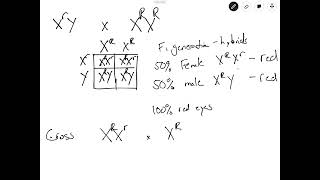 XʳY x XᴿXᴿ
Xᴿ Xᴿ
Xʳ XᴿXʳ XᴿXʳ
Y XᴿY XᴿY
F₁ generation - hybrids
50% Female XᴿXʳ - red
50% male XᴿY - red
100% red eyes
Cross XᴿXʳ x Xᴿ